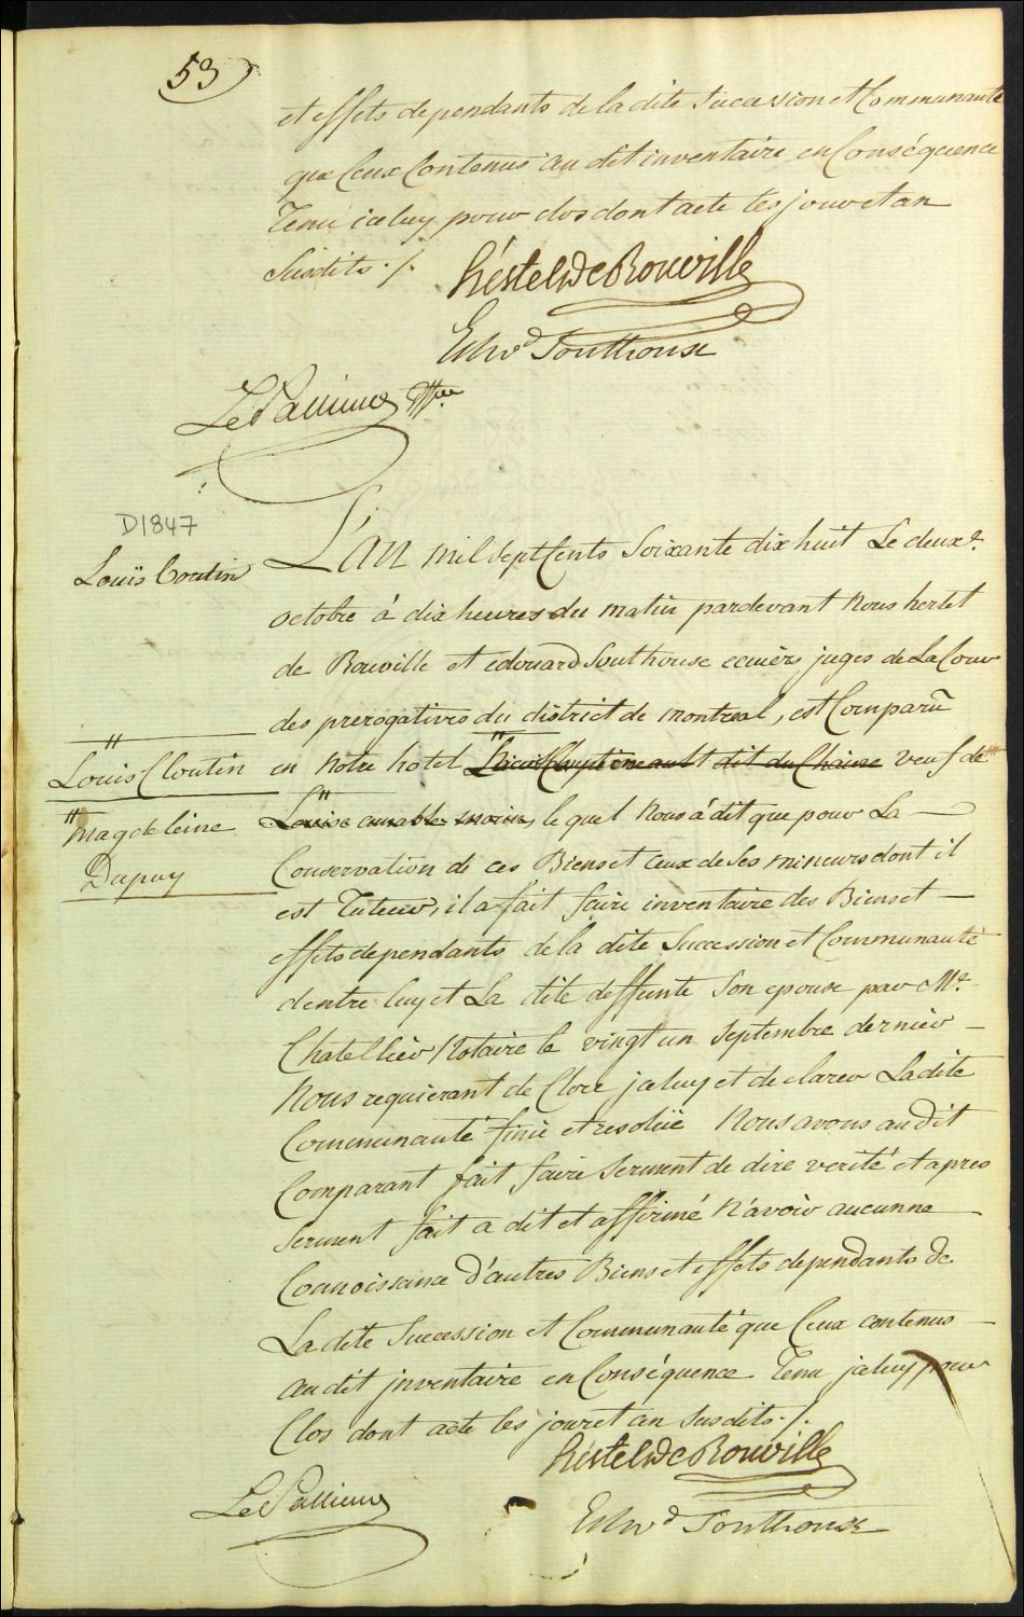 53
et effets dependants de la dite Succession et Communauté
que Ceux Contenus au dit inventaire en Conséquence
Tenu iceluy pour clos dont acte les jour et an
Susdits ./.
hertel De Rouville
Edwd Southouse
LePallieur Gffier
D1847
Louis Coutin
L'an mil sept Cents Soixante dix huit Le deux e.
octobre à dix heures du matin pardevant Nous hertel
de Rouville et edouard Southouse ecuiers juges de La Cour
des prerogatives du district de montreal, est Comparû
Louis Cloutin
en Notre hotel dit du Chaine veuf de
Magdeleine
Louise amable morin, le quel Nous à dit que pour La
Dupuy
Conservation de ces Biens et ceux de Ses mineurs dont il
est Tuteur, il a fait faire inventaire des Biens et
effets dependants de la dite Succession et Communauté
d'entre luy et La dite deffunte Son epouse par Me.
Chatellier Notaire le vingt un Septembre dernier
Nous requierant de Clore jceluy et declarer Ladite
Communauté finie et resolüe Nous avons au dit
Comparant fait faire Serment de dire verité et apres
Serment fait a dit et affirmé N'avoir aucunne
Connoissance d'autres Biens et effets dependants de
La dite Succession et Communauté que Ceux contenus
au dit jnventaire en Conséquence Tenu jceluy pour
Clos dont acte les jour et an Susdits ./.
hertel De Rouville
LePallieur
Edwd Southouse